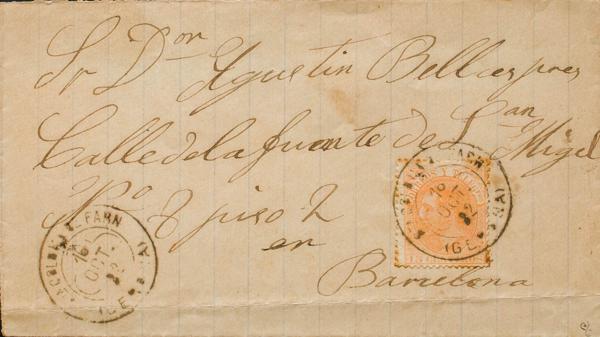 Sr Don Agustin Bellaespres
Calle de la fuente de San Migel
No 8 piso 2
en
Barcelona
FARN
16
OCT
82
(GE
FARN
16
OCT
82
(GE